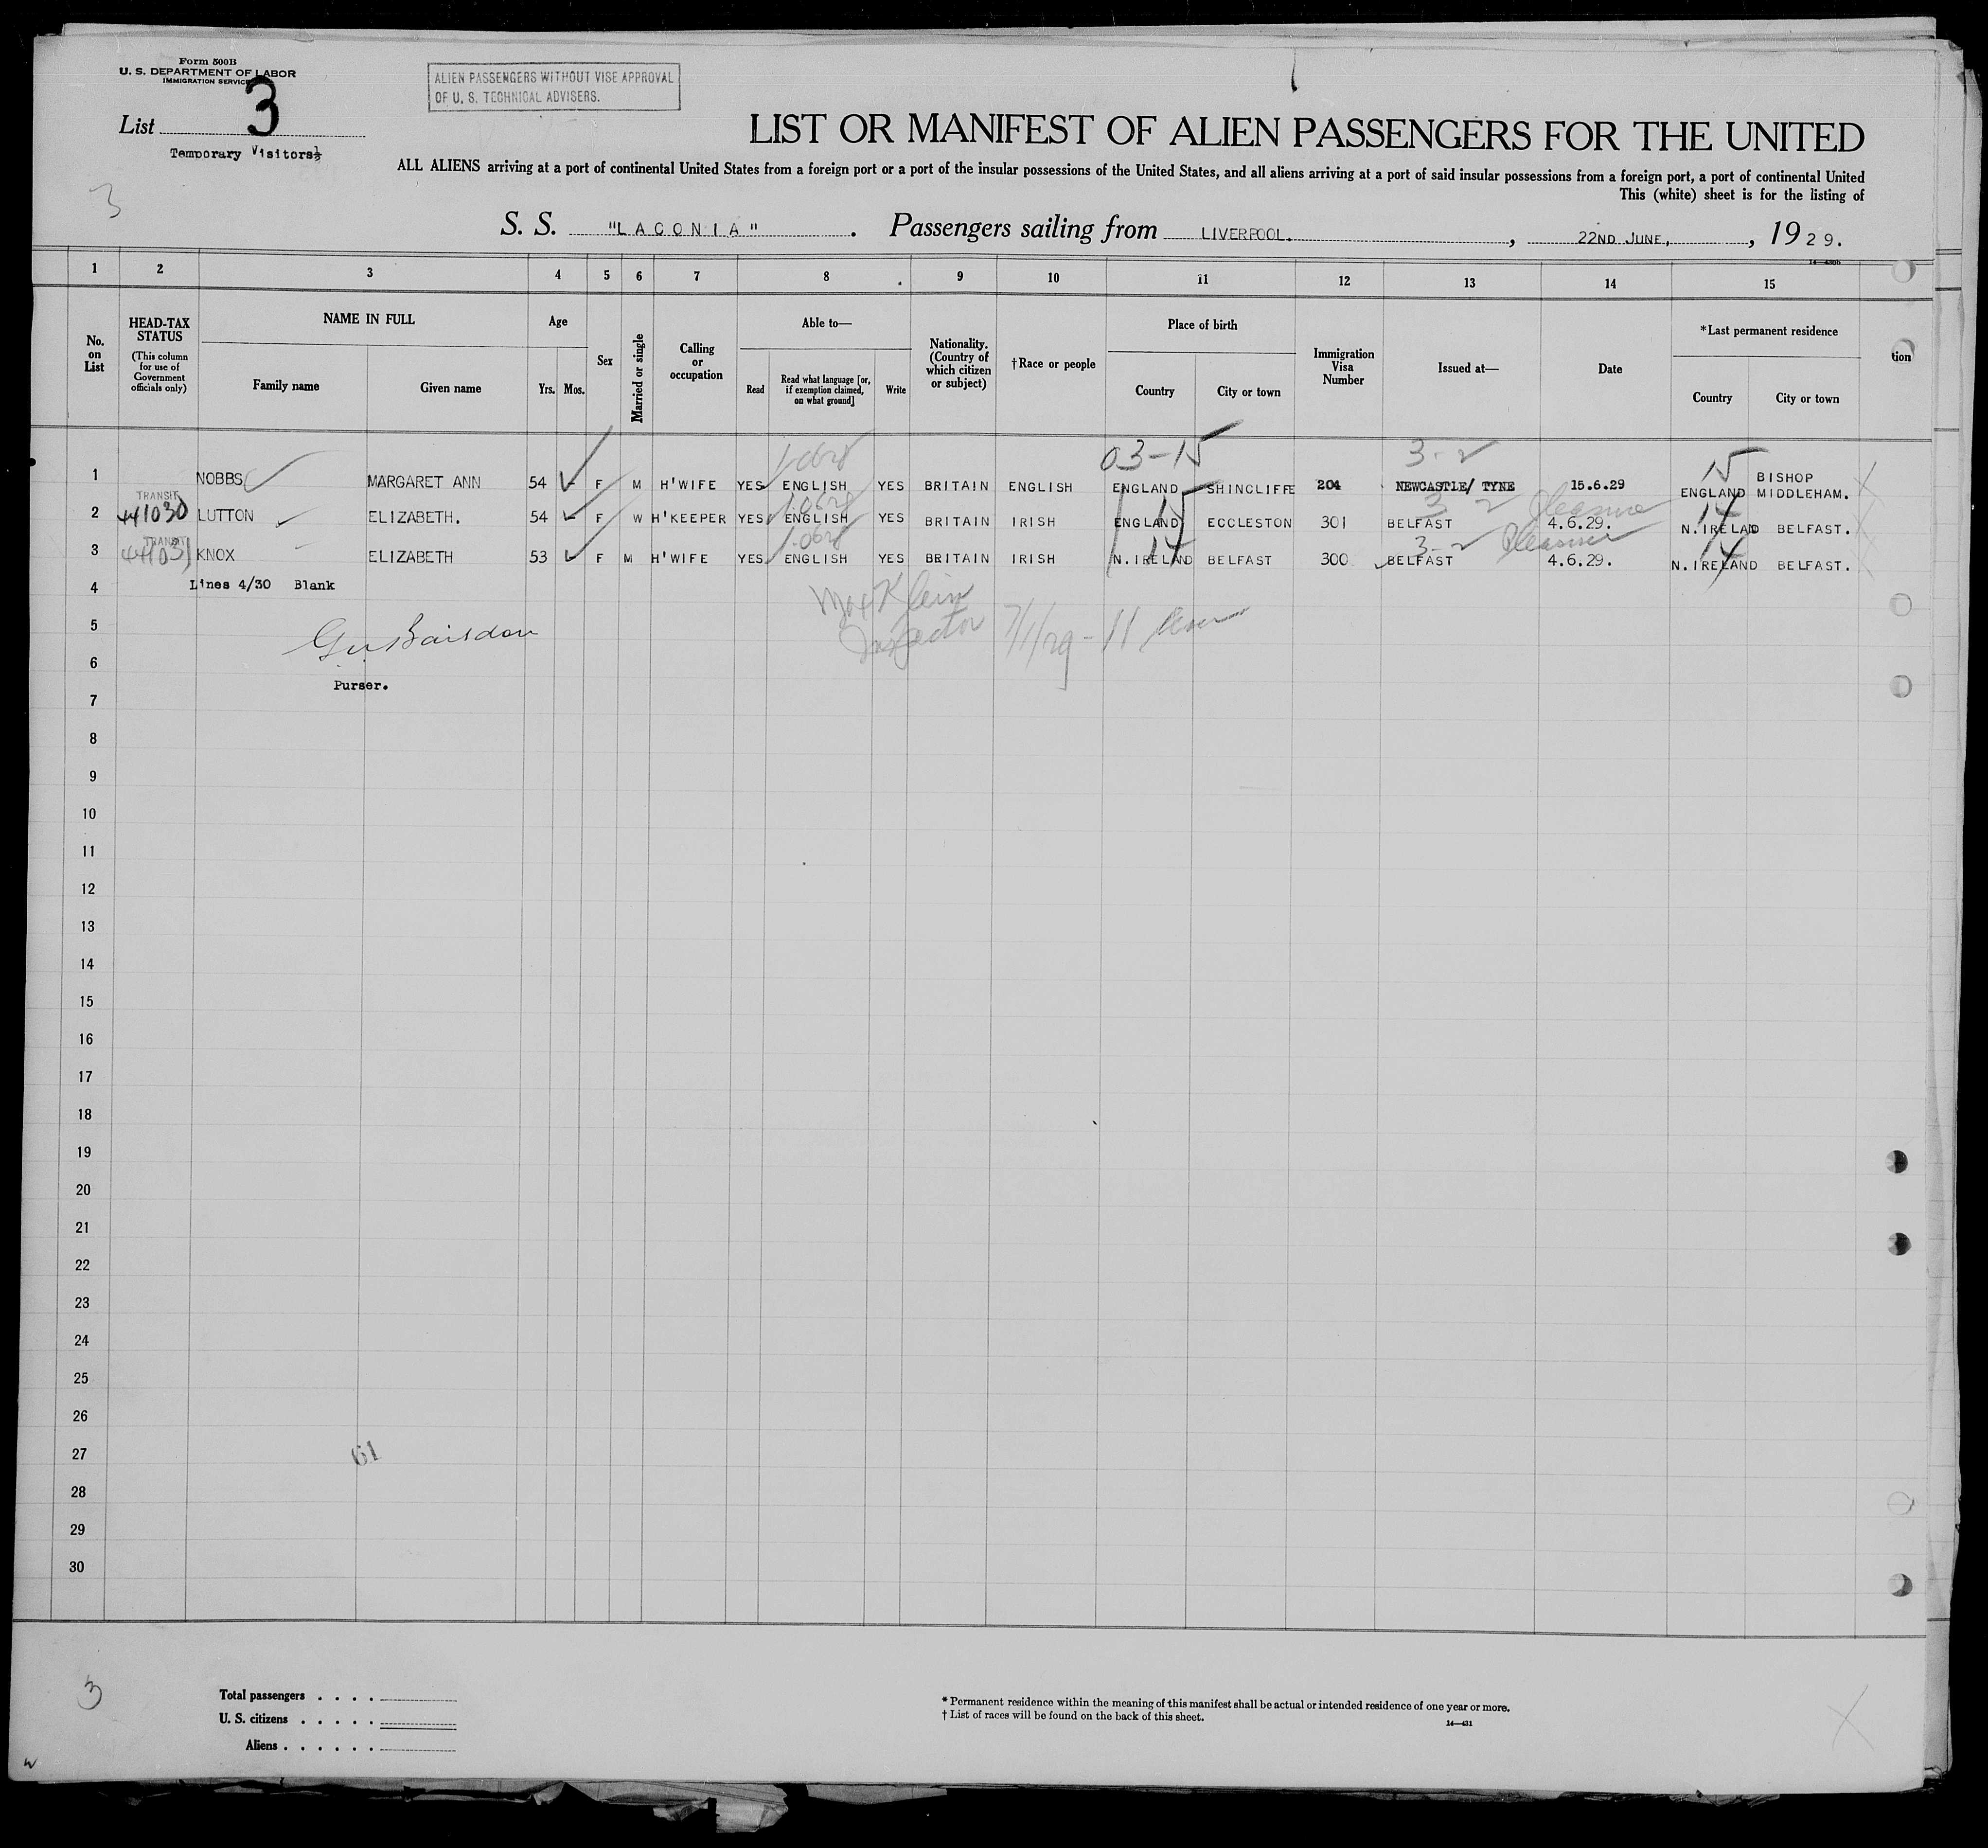 Form 500B
U. S. DEPARTMENT OF LABOR
IMMIGRATION SERVICE
ALIEN PASSENGERS WITHOUT VISE APPROVAL
OF U. S. TECHNICAL ADVISERS.
List 3
Temporary Visitors
3
LIST OR MANIFEST OF ALIEN PASSENGERS FOR THE UNITED
ALL ALIENS arriving at a port of continental United States from a foreign port or a port of the insular possessions of the United States, and all aliens arriving at a port of said insular possessions from a foreign port, a port of continental United
This (white) sheet is for the listing of
S. S. "LACONIA" . Passengers sailing from LIVERPOOL. , 22ND JUNE, , 1929.
1 2 3 4 5 6 7 8 9 10 11 12 13 14 15
No. on List
HEAD-TAX STATUS
(This column for use of Government officials only)
NAME IN FULL
Family name Given name
Age
Yrs. Mos.
Sex
Married or single
Calling or occupation
Able to—
Read
Read what language [or, if exemption claimed, on what ground]
Write
Nationality. (Country of which citizen or subject)
†Race or people
Place of birth
Country City or town
Immigration Visa Number
Issued at—
Date
*Last permanent residence
Country City or town
tion
03-15 3-2 15
1 NOBBS MARGARET ANN 54 F M H'WIFE YES ENGLISH YES BRITAIN ENGLISH ENGLAND SHINCLIFFE 204 NEWCASTLE/ TYNE 15.6.29 ENGLAND BISHOP MIDDLEHAM.
TRANSIT 15 3-2 Pleasure 14
2 441030 LUTTON ELIZABETH. 54 F W H'KEEPER YES ENGLISH YES BRITAIN IRISH ENGLAND ECCLESTON 301 BELFAST 4.6.29. N.IRELAD BELFAST.
TRANSIT 14 3-2 Pleasure 14
3 441031 KNOX ELIZABETH 53 F M H'WIFE YES ENGLISH YES BRITAIN IRISH N.IRELAND BELFAST 300 BELFAST 4.6.29. N.IRELAND BELFAST.
4 Lines 4/30 Blank
Max Klein
5
Inspector 7/1/29 - 11
6
Purser.
7
8
9
10
11
12
13
14
15
16
17
18
19
20
21
22
23
24
25
26
27
61
28
29
30
3
Total passengers . . . .
U. S. citizens . . . . .
Aliens . . . . . .
* Permanent residence within the meaning of this manifest shall be actual or intended residence of one year or more.
† List of races will be found on the back of this sheet.
14—431